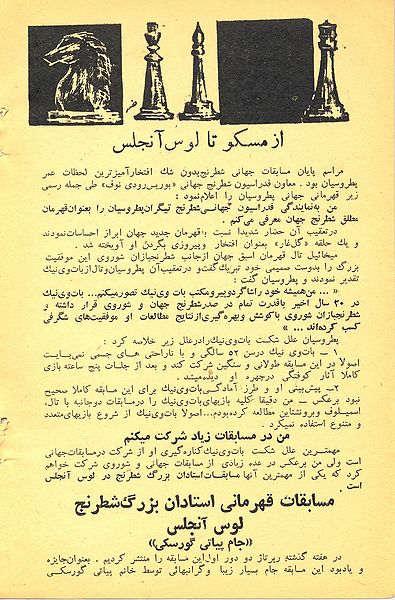 از مسکو تا لوس آنجلس
مراسم پایان مسابقات جهانی شطرنج بدون شك افتخارآمیزترین لحظات عمر
پطروسیان بود . معاون فدراسیون شطرنج جهانی «بوریس رودی نوف» طی جمله رسمی
زیر قهرمانی جهانی پطروسیان را اعلام نمود :
من به نمایندگی فدراسیون جهانی شطرنج تیگران پطروسیان را بعنوان قهرمان
مطلق شطرنج جهان معرفی می کنم .
درتعقیب آن حضار شدیدا نسبت بقهرمان جدید جهان ابراز احساسات نمودند
و یك حلقه «گل غار» بعنوان افتخار و پیروزی بگردن او آویخته شد .
میخائیل تال قهرمان اسبق جهان از جانب شطرنجبازان شوروی این موفقیت
بزرگ را بدوست صمیمی خود تبریك گفت و درتعقیب آن پطروسیان و تال از بات وی نیك
تقدیر نمودند و پطروسیان گفت :
« ... من همیشه خود را شاگرد و پیرو مکتب بات وی نیك تصور میکنم ... بات وی نیك
در ۲۰ سال اخیر باقدرت تمام در صدر شطرنج جهان و شوروی قرار داشته و
شطرنجبازان شوروی با کوشش و بهره گیری از نتایج مطالعات او موفقیت های شگرفی
کسب کرده اند ... »
پطروسیان علل شکست بات وی نیك را در علل زیر خلاصه کرد :
۱ – بات وی نیك درسن ۵۲ سالگی و با ناراحتی های جسمی نمی بایست
اصولا در این مسابقه طولانی و سنگین شرکت کند و بعد از جلسات پنج ساعته بازی
کاملا آثار کوفتگی درچهره او دیده میشد .
۲ – پیش بینی او و طرز آمادگی بات وی نیك برای این مسابقه کاملا صحیح
نبود برعکس – من دقیقا کلیه بازیهای بات وی نیك را در مسابقات دوجانبه با تال،
اسمیسلوف و برونشتاین مطالعه کرده بودم... اصولا بات وی نیك از شروع بازیهای متعدد
و متنوع استفاده نمیکرد .
من در مسابقات زیاد شرکت میکنم
مهمترین علل شکست بات وی نیك کناره گیری او از شرکت در مسابقات جهانی
است ولی من برعکس در عده زیادی از مسابقات جهانی و شوروی شرکت خواهم
کرد که یکی از مهمترین آنها مسابقات استادان بزرگ شطرنج در لوس آنجلس
است .
مسابقات قهرمانی استادان بزرگ شطرنج
لوس آنجلس
«(جام پیاتی گورسکی)»
در هفته گذشته رپرتاژ دو دور اول این مسابقه را منتشر کردیم . بعنوان جایزه
و یادبود این مسابقه جام بسیار زیبا و گرانبهائی توسط خانم پیاتی گورسکی